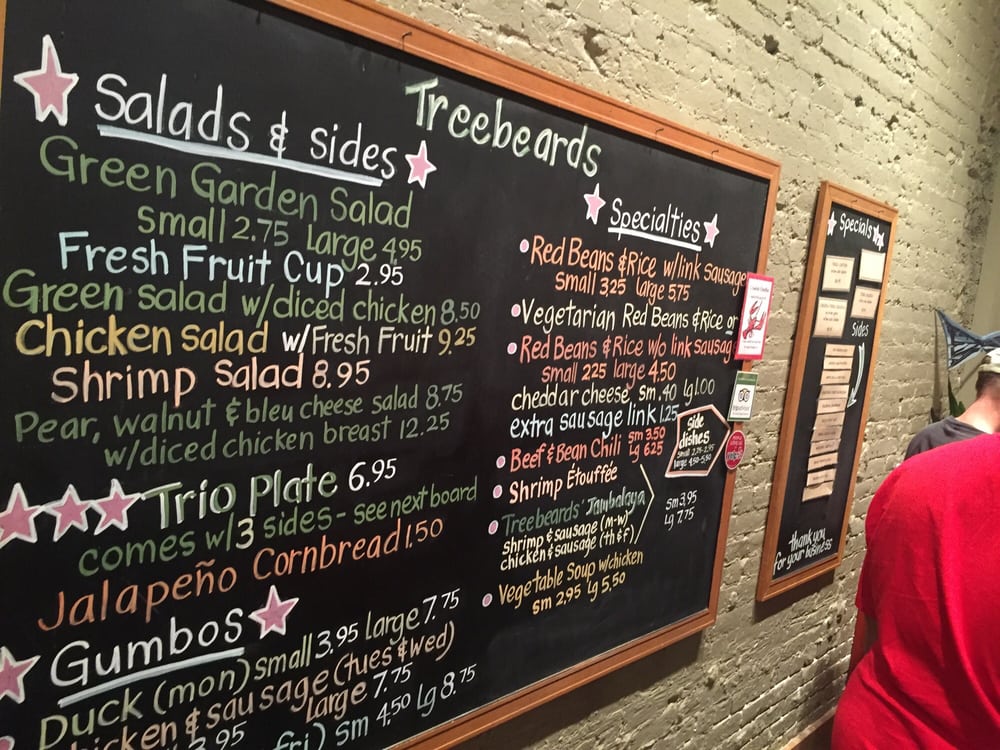 Treebeards
Salads & sides
Green Garden Salad
small 2.75 Large 4.95
Fresh Fruit Cup 2.95
Green salad w/diced chicken 8.50
Chicken salad w/Fresh Fruit 9.25
Shrimp Salad 8.95
Pear, walnut & bleu cheese salad 8.75
w/diced chicken breast 12.25
Trio Plate 6.95
comes w/3 sides - see next board
Jalapeño Cornbread 1.50
Gumbos
Duck (mon) small 3.95 large 7.75
chicken & sausage (tues & wed)
3.95 large 7.75
fri) sm 4.50 lg 8.75
Specialties
Red Beans & Rice w/link sausage
small 3.25 large 5.75
Vegetarian Red Beans & Rice or
Red Beans & Rice w/o link sausag
small 2.25 large 4.50
cheddar cheese sm .40 lg 1.00
extra sausage link 1.25
Beef & Bean Chili sm 3.50
Lg 6.25
Shrimp Étouffée
Treebeards' Jambalaya
shrimp & sausage (m-w)
chicken & sausage (th & f)
sm 3.95
Lg 7.75
Vegetable Soup w/chicken
sm 2.95 lg 5.50
side
dishes
small 2.75-2.95
large 4.50-5.50
Specials
Sides
thank you
for your business